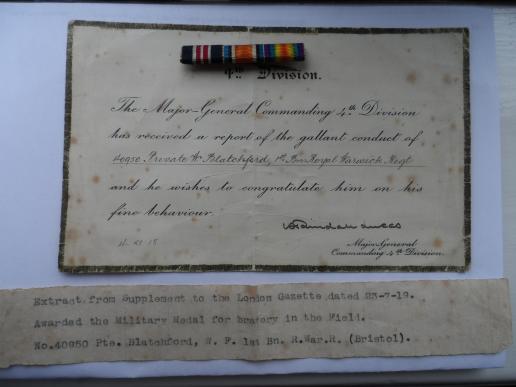 4th Division.
The Major-General Commanding 4th Division
has received a report of the gallant conduct of
Private W. Blatchford, 1st Bn Royal Warwick Regt
and he wishes to congratulate him on his
fine behaviour.
Major General
Commanding 4th Division.
Extract from Supplement to the London Gazette dated 23-7-19.
Awarded the Military Medal for bravery in the Field.
No.40950 Pte. Blatchford, W. F. 1st Bn. R.War.R. (Bristol).